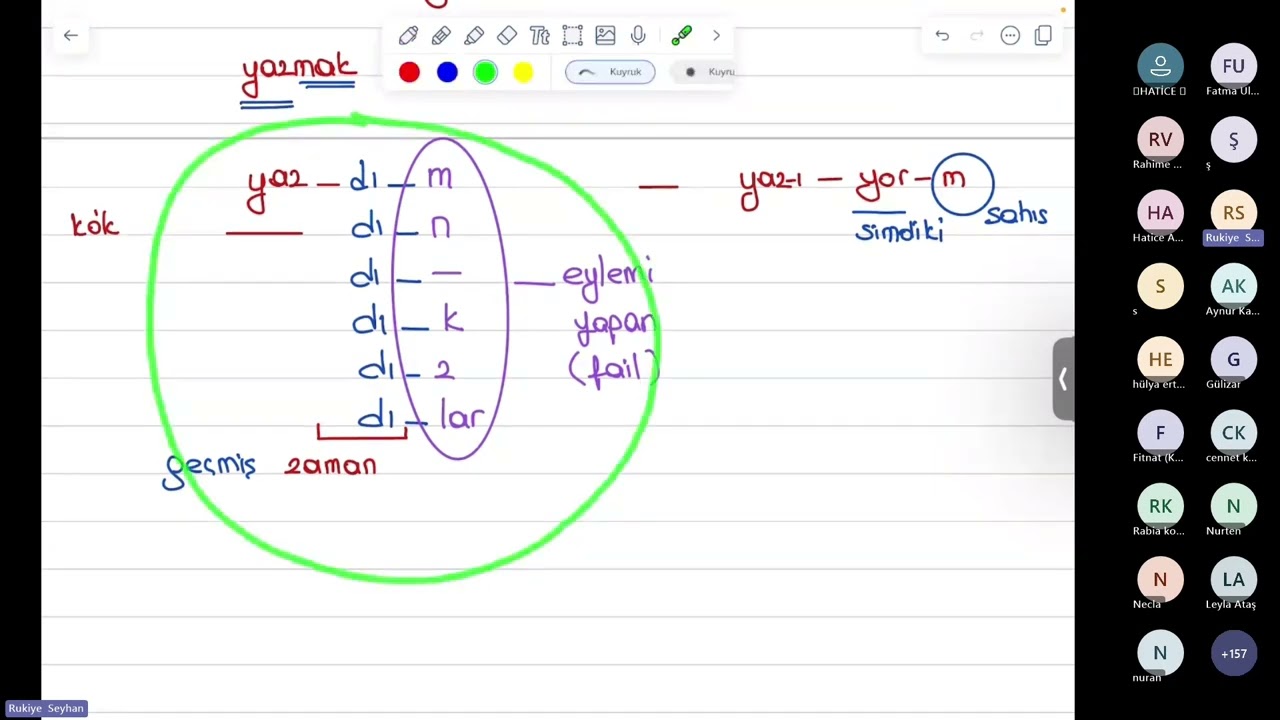 Kuyruk
Kuyru
yazmak
yaz – dı – m
kök
dı – n
dı – —
dı – k
dı – z
dı – lar
geçmiş zaman
— eylemi
yapan
(fail)
— yaz-ı – yor – m
şimdiki
şahıs
HATİCE
FU
Fatma Ul...
RV
Rahime ...
Ş
ş
HA
Hatice A...
RS
Rukiye S...
S
s
AK
Aynur Ka...
HE
hülya ert...
G
Gülizar
F
Fitnat (K...
CK
cennet k...
RK
Rabia ko...
N
Nurten
N
Necla
LA
Leyla Ataş
N
nuran
+157
Rukiye Seyhan